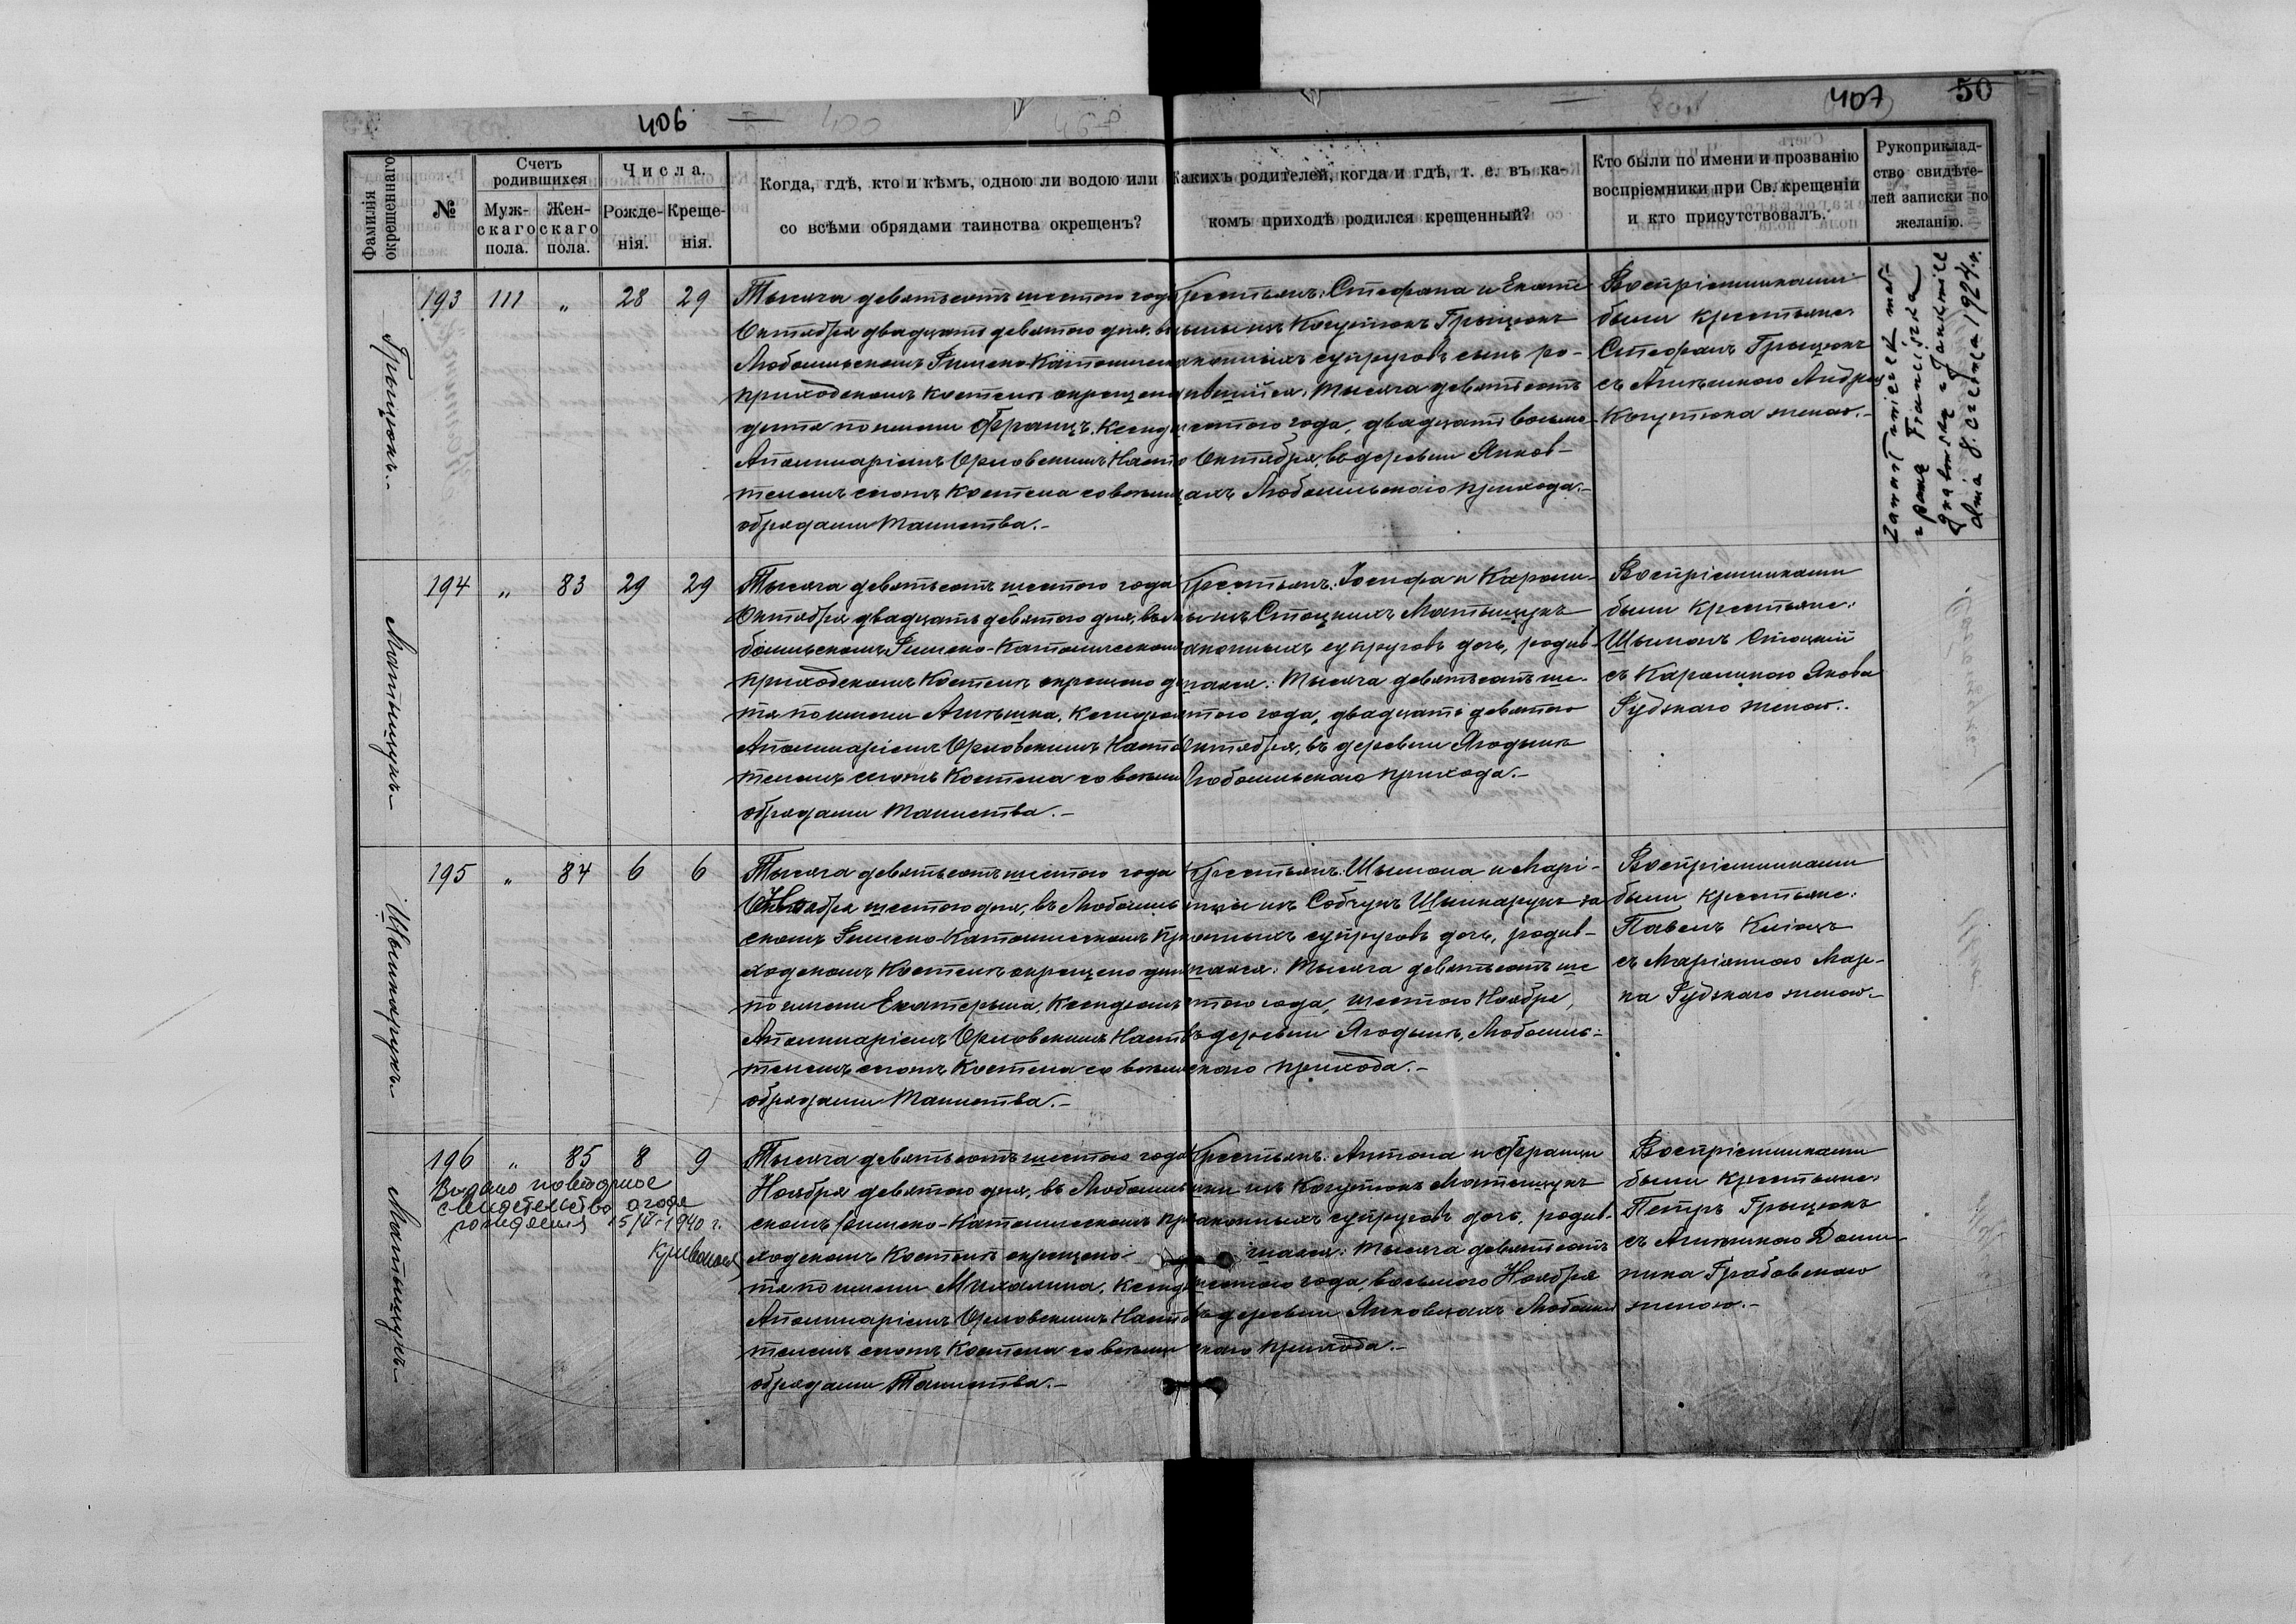 406
407
50
Фамилія окрещеннаго.
№
Счетъ родившихся
Муж-скаго пола.
Жен-скаго пола.
Числа.
Рожде-нія.
Креще-нія.
Когда, гдѣ, кто и кѣмъ, одною ли водою или
со всѣми обрядами таинства окрещенъ?
Какихъ родителей, когда и гдѣ, т. е. въ ка-
комъ приходѣ родился крещенный?
Кто были по имени и прозванію
воспріемники при Св. крещеніи
и кто присутствовалъ.
Рукоприклад-
ство свидѣте-
лей записки по
желанію.
Грыцюкъ.-
193 111 " 28 29
Тысяча девятьсотъ шестого года
Октября двадцать девятого дня, въ
Любомльскомъ Римско-Католическ
приходскомъ костелѣ окрещено
дитя по имени Францъ, Ксендз
Аполинаріемъ Орловскимъ Насто
телемъ сего Костела со всѣми
обрядами Таинства.-
Крестьянъ: Стефана и Екате
рыны изъ Когутюкъ Грыцюкъ
аконныхъ супруговъ сынъ ро-
ившійся: Тысяча девятьсотъ
естого года, двадцать восьмо
Октября, въ деревни Янков-
ахъ Любомльскаго прихода.-
Воспріемниками
были крестьяне:
Стефанъ Грыцюкъ
съ Агнѣшкою Андрея
Когутюка женою.-
Zawarł związek mał
z panną Franciszką
dnia 8. 1924 r.
Матыщукъ-
194 " 83 29 29
Тысяча девятьсотъ шестого года
Октября двадцать девятого дня, въ Л
бомльскомъ Римско-Католическомъ
приходскомъ Костелѣ окрещено д
тя по имени Агнѣшка, Ксендзом
Аполинаріемъ Орловскимъ Насто
телемъ сего Костела со всѣми
обрядами Таинства.-
Крестьянъ: Іосифа и Кароли-
ы изъ Стоцкихъ Матыщукъ
аконныхъ супруговъ дочь, родив-
шаяся: Тысяча девятьсотъ ше-
стого года, двадцать девятого
Октября, въ деревни Ягодынѣ
Любомльскаго прихода.-
Воспріемниками
были крестьяне:
Шымонъ Стоцкій
съ Каролиною Якова
Рудзкаго женою.-
Шынкарукъ-
195 " 84 6 6
Тысяча девятьсотъ шестого года
Ноября шестого дня, въ Любомль
скомъ Римско-Католическомъ Пр
ходскомъ Костелѣ окрещено дит
по имени Екатерына, Ксендзомъ
Аполинаріемъ Орловскимъ Наст
телемъ сего Костела со всѣми
обрядами Таинства.-
Крестьянъ: Шымона и Марі-
нны изъ Собчукъ Шынкарукъ за
онныхъ супруговъ дочь, родив-
шаяся: Тысяча девятьсотъ ше
стого года, шестого Ноября,
въ деревни Ягодынѣ, Любомль-
скаго прихода.-
Воспріемниками
были крестьяне:
Павелъ Кліонъ
съ Маріянною Мар-
ка Рудзкаго женою-
Матыщукъ-
196 " 85 8 9
Выдано повторное
свидетельство о годе
рождения 15/IV-1940 г.
Тысяча девятьсотъ шестого года
Ноября девятого дня, въ Любомль
скомъ Римско-Католическомъ Пр
ходскомъ Костелѣ окрещено
тя по имени Михалина, Ксендз
Аполинаріемъ Орловскимъ Насто
телемъ сего Костела со всѣми
обрядами Таинства.-
Крестьянъ: Антона и Францы
шки изъ Когутюкъ Матыщукъ
аконныхъ супруговъ дочь, родив-
шаяся: Тысяча девятьсотъ
шестого года, восьмого Ноября
въ деревни Янковцахъ Любомль
скаго прихода.-
Воспріемниками
были крестьяне:
Петръ Грыцюкъ
съ Агнѣшкою Доми-
ника Грабовскаго
женою.-